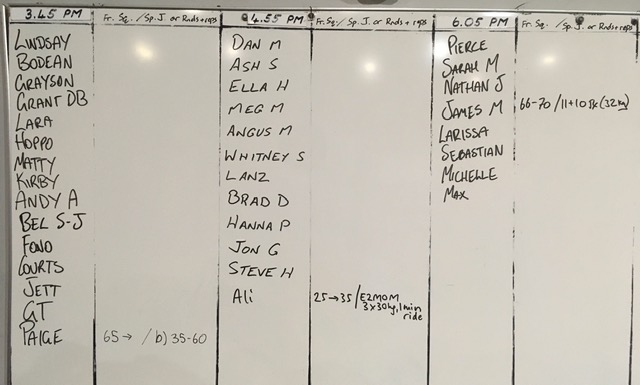 3.45 PM
Fr. Sq. / Sp. J. or Rnds + reps
LINDSAY
BODEAN
GRAYSON
GRANT DB
LARA
HOPPO
MATTY
KIRBY
ANDY A
BEL S-J
FOND
COURTS
JETT
GT
PAIGE 65→ / b) 35-60
4.55 PM
Fr. Sq. / Sp. J. or Rnds + reps
DAN M
ASH S
ELLA H
MEG M
ANGUS M
WHITNEY S
LANZ
BRAD D
HANNA P
JON G
STEVE H
Ali 25→35 / E2MOM
3x30kg, 1min
ride
6.05 PM
Fr Sq. / Sp. J. or Rnds + reps
PIERCE
SARAH M
NATHAN J
JAMES M 66-70 / 11+10
LARISSA
SEBASTIAN
MICHELLE
MAX